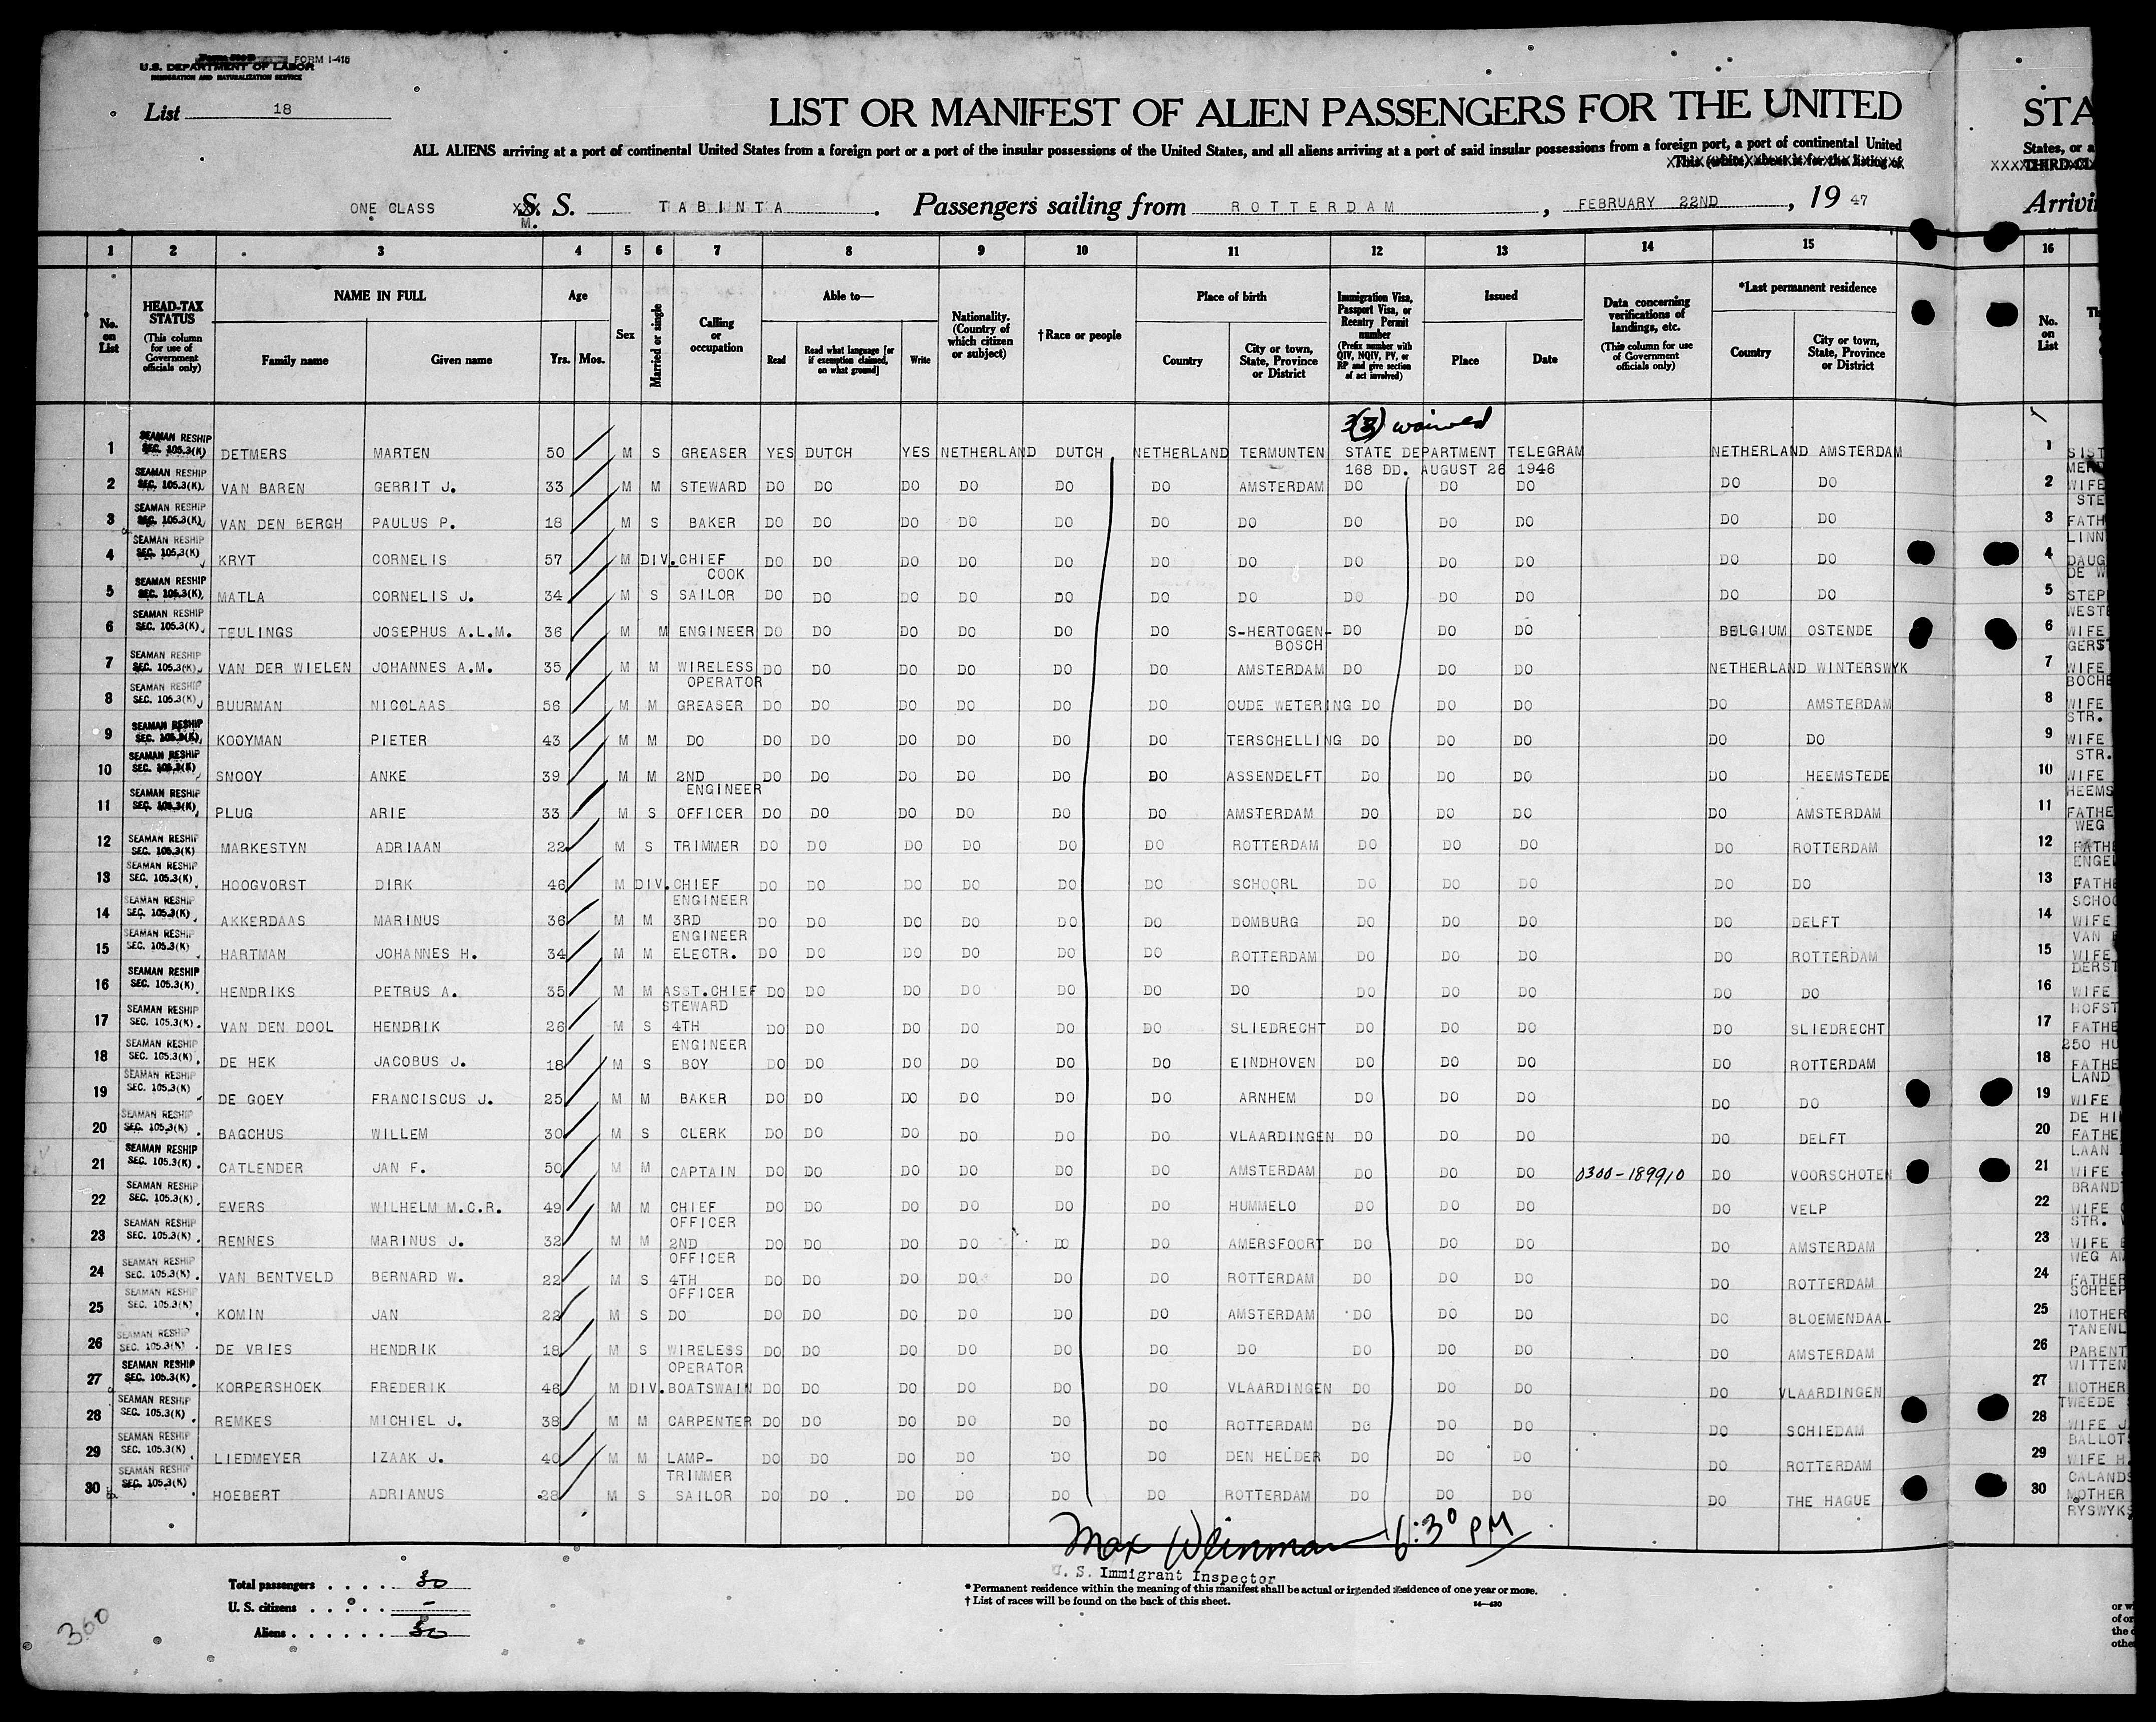 FORM I-415
U.S. DEPARTMENT OF LABOR
IMMIGRATION AND NATURALIZATION SERVICE
List 18
LIST OR MANIFEST OF ALIEN PASSENGERS FOR THE UNITED STA
ALL ALIENS arriving at a port of continental United States from a foreign port or a port of the insular possessions of the United States, and all aliens arriving at a port of said insular possessions from a foreign port, a port of continental United States, or a
This (white) sheet is for the listing of THIRD-CL
ONE CLASS XXX S. S. TABINTA. Passengers sailing from ROTTERDAM, FEBRUARY 22ND, 19 47 Arrivi
M.
1 2 3 4 5 6 7 8 9 10 11 12 13 14 15 16
No. on List
HEAD-TAX STATUS (This column for use of Government officials only)
NAME IN FULL
Family name Given name
Age
Yrs. Mos.
Sex
Married or single
Calling or occupation
Able to—
Read Read what language [or if exemption claimed, on what ground] Write
Nationality. (Country of which citizen or subject)
† Race or people
Place of birth
Country City or town, State, Province or District
Immigration Visa, Passport Visa, or Reentry Permit number (Prefix number with QIV, NQIV, PV, or RP and give section of act involved)
Issued
Place Date
Data concerning verifications of landings, etc. (This column for use of Government officials only)
*Last permanent residence
Country City or town, State, Province or District
No. on List
3(3) waived
1 SEAMAN RESHIP SEC. 105.3(K) DETMERS MARTEN 50 M S GREASER YES DUTCH YES NETHERLAND DUTCH NETHERLAND TERMUNTEN STATE DEPARTMENT TELEGRAM NETHERLAND AMSTERDAM 1
168 DD. AUGUST 26 1946
2 SEAMAN RESHIP SEC. 105.3(K) VAN BAREN GERRIT J. 33 M M STEWARD DO DO DO DO DO DO AMSTERDAM DO DO DO DO DO 2 WIFE
3 SEAMAN RESHIP SEC. 105.3(K) VAN DEN BERGH PAULUS P. 18 M S BAKER DO DO DO DO DO DO DO DO DO DO DO DO 3 FATH
4 SEAMAN RESHIP SEC. 105.3(K) KRYT CORNELIS 57 M DIV. CHIEF COOK DO DO DO DO DO DO DO DO DO DO DO DO 4 DAUG
5 SEAMAN RESHIP SEC. 105.3(K) MATLA CORNELIS J. 34 M S SAILOR DO DO DO DO DO DO DO DO DO DO DO DO 5 STEP
6 SEAMAN RESHIP SEC. 105.3(K) TEULINGS JOSEPHUS A.L.M. 36 M M ENGINEER DO DO DO DO DO DO S-HERTOGEN-BOSCH DO DO DO BELGIUM OSTENDE 6 WIFE
7 SEAMAN RESHIP SEC. 105.3(K) VAN DER WIELEN JOHANNES A.M. 35 M M WIRELESS OPERATOR DO DO DO DO DO DO AMSTERDAM DO DO DO NETHERLAND WINTERSWYK 7 WIFE
8 SEAMAN RESHIP SEC. 105.3(K) BUURMAN NICOLAAS 56 M M GREASER DO DO DO DO DO DO OUDE WETERING DO DO DO DO AMSTERDAM 8 WIFE
9 SEAMAN RESHIP SEC. 105.3(K) KOOYMAN PIETER 43 M M DO DO DO DO DO DO DO TERSCHELLING DO DO DO DO DO 9 WIFE
10 SEAMAN RESHIP SEC. 105.3(K) SNOOY ANKE 39 M M 2ND ENGINEER DO DO DO DO DO DO ASSENDELFT DO DO DO DO HEEMSTEDE 10 WIFE
11 SEAMAN RESHIP SEC. 105.3(K) PLUG ARIE 33 M S OFFICER DO DO DO DO DO DO AMSTERDAM DO DO DO DO AMSTERDAM 11 FATHE
12 SEAMAN RESHIP SEC. 105.3(K) MARKESTYN ADRIAAN 22 M S TRIMMER DO DO DO DO DO DO ROTTERDAM DO DO DO DO ROTTERDAM 12 FATHE
13 SEAMAN RESHIP SEC. 105.3(K) HOOGVORST DIRK 46 M DIV. CHIEF ENGINEER DO DO DO DO DO DO SCHOORL DO DO DO DO DO 13 FATHE
14 SEAMAN RESHIP SEC. 105.3(K) AKKERDAAS MARINUS 36 M M 3RD ENGINEER DO DO DO DO DO DO DOMBURG DO DO DO DO DELFT 14 WIFE
15 SEAMAN RESHIP SEC. 105.3(K) HARTMAN JOHANNES H. 34 M M ELECTR. DO DO DO DO DO DO ROTTERDAM DO DO DO DO ROTTERDAM 15 WIFE
16 SEAMAN RESHIP SEC. 105.3(K) HENDRIKS PETRUS A. 35 M M ASST. CHIEF STEWARD DO DO DO DO DO DO DO DO DO DO DO DO 16 WIFE
17 SEAMAN RESHIP SEC. 105.3(K) VAN DEN DOOL HENDRIK 26 M S 4TH ENGINEER DO DO DO DO DO DO SLIEDRECHT DO DO DO DO SLIEDRECHT 17 FATHE
18 SEAMAN RESHIP SEC. 105.3(K) DE HEK JACOBUS J. 18 M S BOY DO DO DO DO DO DO EINDHOVEN DO DO DO DO ROTTERDAM 18 FATHE
19 SEAMAN RESHIP SEC. 105.3(K) DE GOEY FRANCISCUS J. 25 M M BAKER DO DO DO DO DO DO ARNHEM DO DO DO DO DO 19 WIFE
20 SEAMAN RESHIP SEC. 105.3(K) BAGCHUS WILLEM 30 M S CLERK DO DO DO DO DO DO VLAARDINGEN DO DO DO DO DELFT 20 FATHE
21 SEAMAN RESHIP SEC. 105.3(K) CATLENDER JAN F. 50 M M CAPTAIN DO DO DO DO DO DO AMSTERDAM DO DO DO 0300-189910 DO VOORSCHOTEN 21 WIFE
22 SEAMAN RESHIP SEC. 105.3(K) EVERS WILHELM M.C.R. 49 M M CHIEF OFFICER DO DO DO DO DO DO HUMMELO DO DO DO DO VELP 22 WIFE
23 SEAMAN RESHIP SEC. 105.3(K) RENNES MARINUS J. 32 M M 2ND OFFICER DO DO DO DO DO DO AMERSFOORT DO DO DO DO AMSTERDAM 23 WIFE
24 SEAMAN RESHIP SEC. 105.3(K) VAN BENTVELD BERNARD W. 22 M S 4TH OFFICER DO DO DO DO DO DO ROTTERDAM DO DO DO DO ROTTERDAM 24 FATHER
25 SEAMAN RESHIP SEC. 105.3(K) KOMIN JAN 22 M S DO DO DO DO DO DO DO AMSTERDAM DO DO DO DO BLOEMENDAAL 25 MOTHER
26 SEAMAN RESHIP SEC. 105.3(K) DE VRIES HENDRIK 18 M S WIRELESS OPERATOR DO DO DO DO DO DO DO DO DO DO DO AMSTERDAM 26 PARENT
27 SEAMAN RESHIP SEC. 105.3(K) KORPERSHOEK FREDERIK 46 M DIV. BOATSWAIN DO DO DO DO DO DO VLAARDINGEN DO DO DO DO VLAARDINGEN 27 MOTHER
28 SEAMAN RESHIP SEC. 105.3(K) REMKES MICHIEL J. 38 M M CARPENTER DO DO DO DO DO DO ROTTERDAM DO DO DO DO SCHIEDAM 28 WIFE J
29 SEAMAN RESHIP SEC. 105.3(K) LIEDMEYER IZAAK J. 40 M M LAMP-TRIMMER DO DO DO DO DO DO DEN HELDER DO DO DO DO ROTTERDAM 29 WIFE H
30 SEAMAN RESHIP SEC. 105.3(K) HOEBERT ADRIANUS 28 M S SAILOR DO DO DO DO DO DO ROTTERDAM DO DO DO DO THE HAGUE 30 MOTHER
RYSWYKS
Max Weinman 6:30 PM
U. S. Immigrant Inspector
Total passengers . . . . 30
U. S. citizens . . . . -
Aliens . . . . . . 30
* Permanent residence within the meaning of this manifest shall be actual or intended residence of one year or more.
† List of races will be found on the back of this sheet.
360